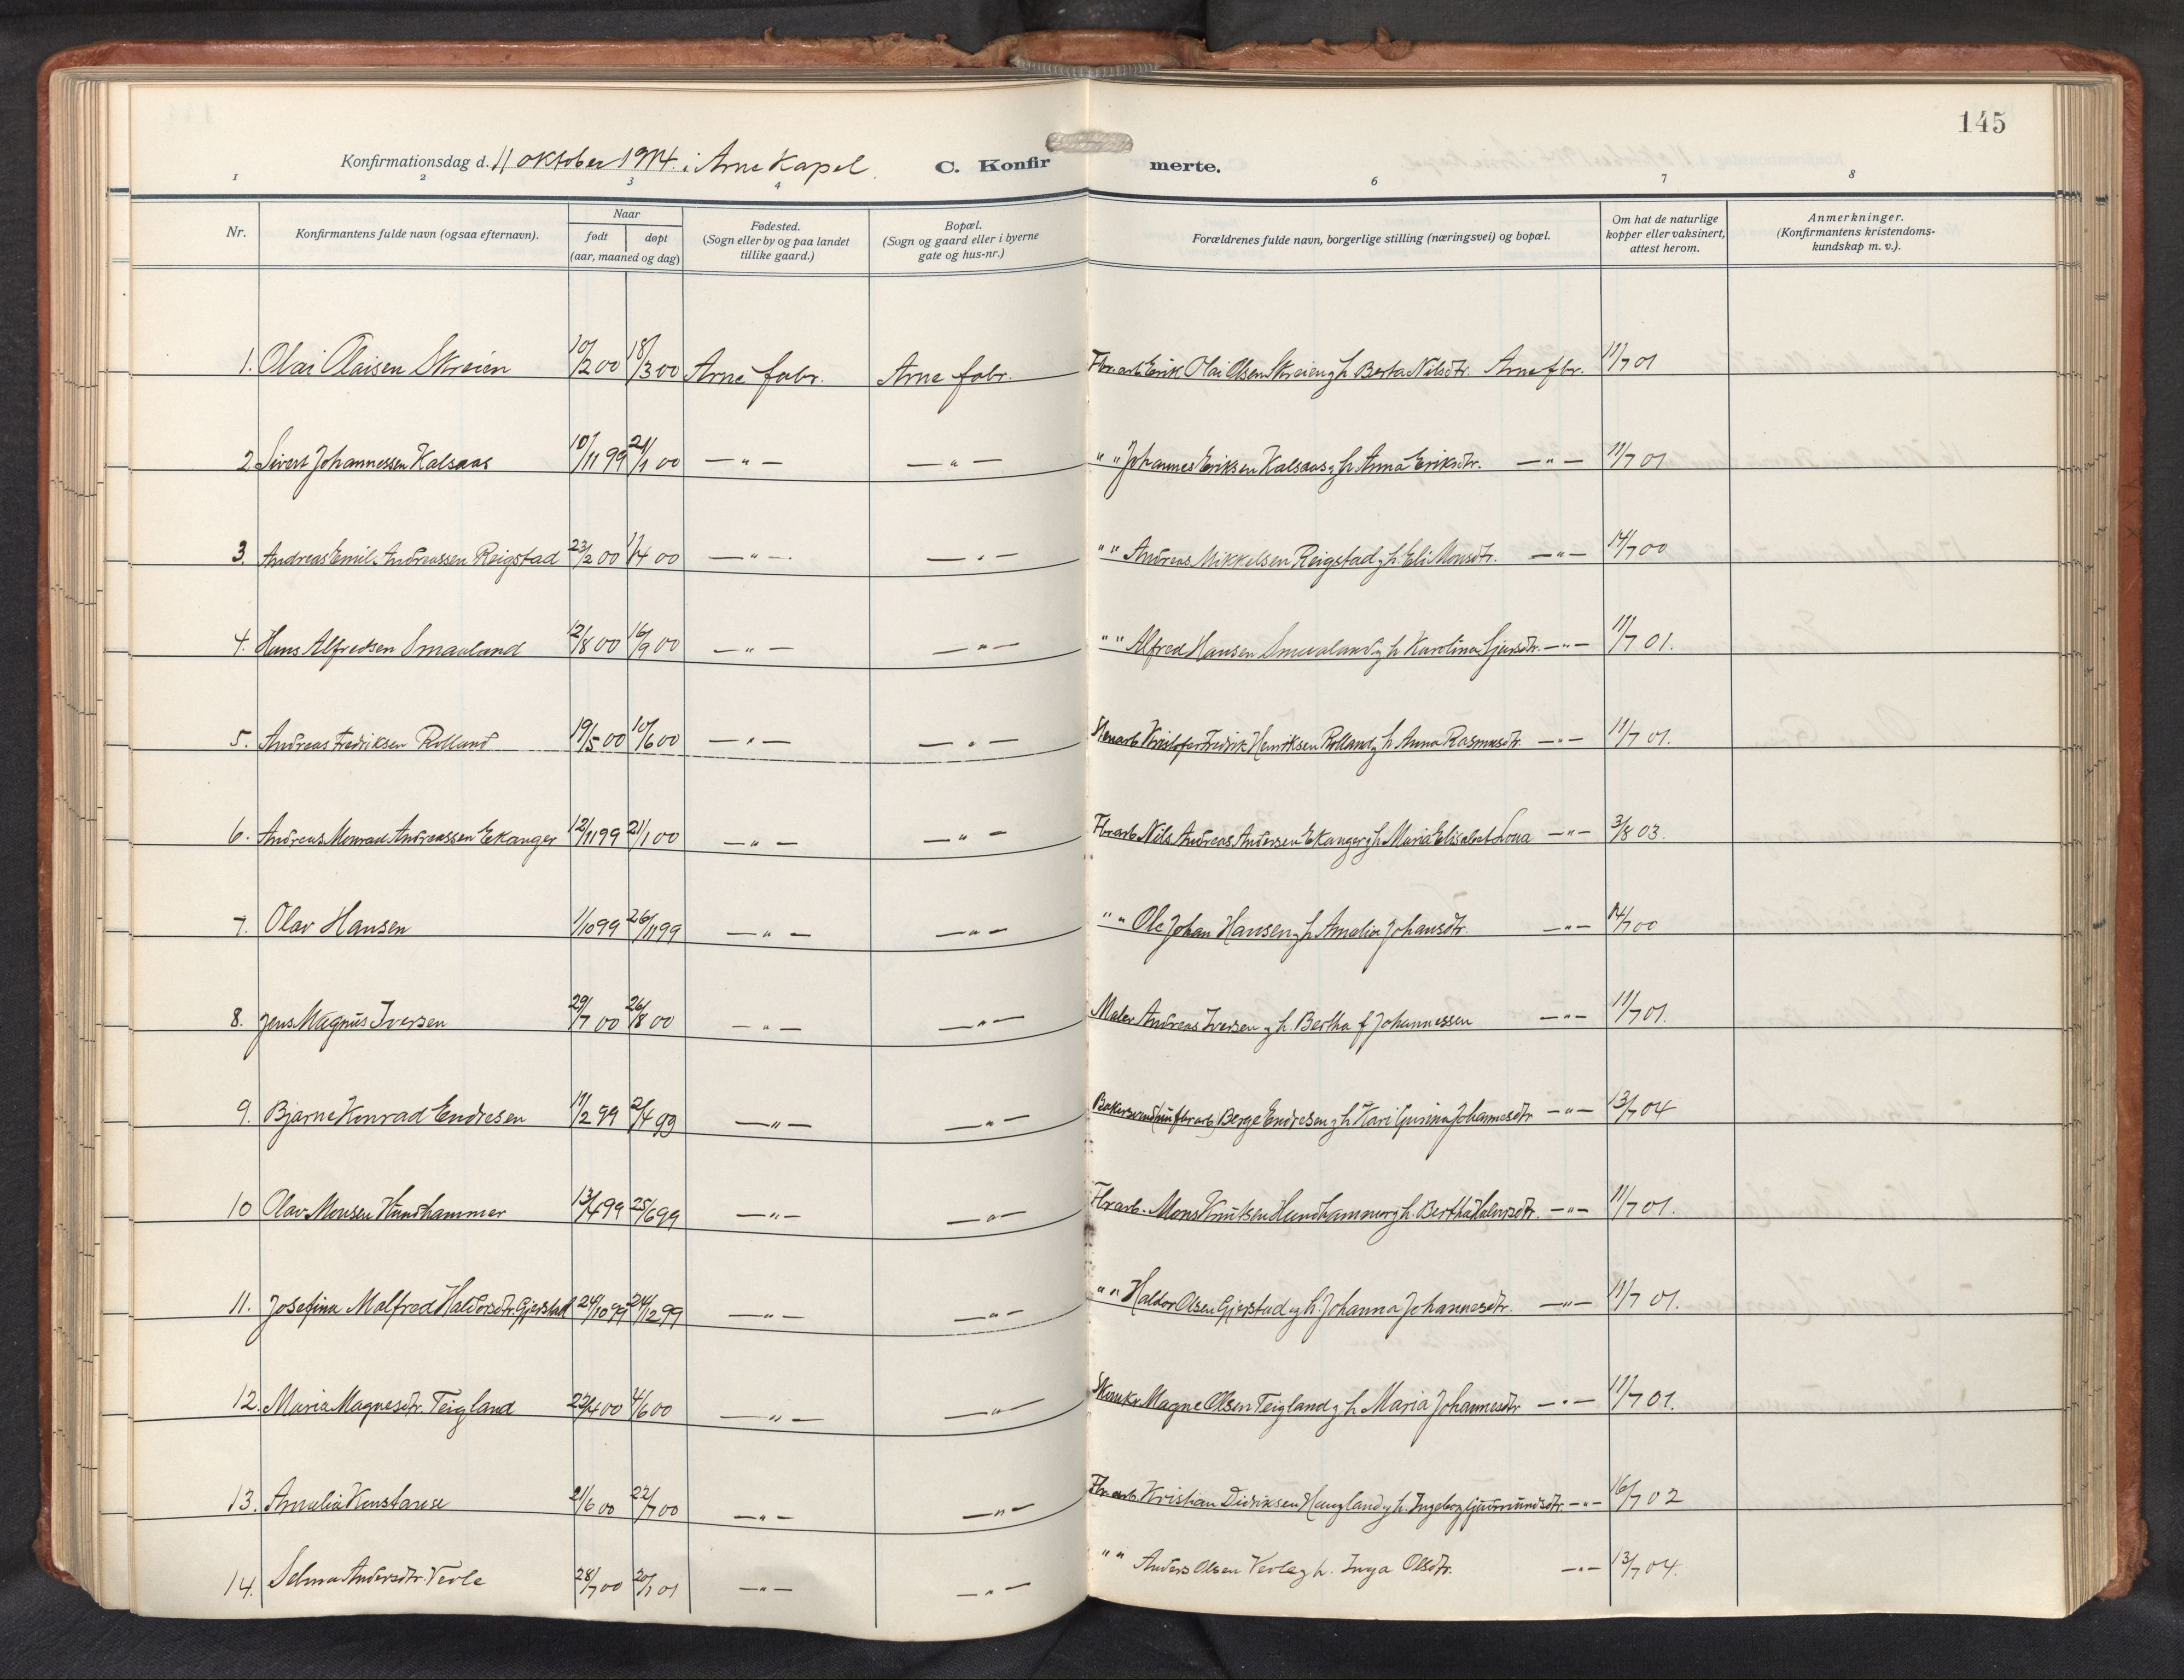 145
Konfirmationsdag d. 11 oktober 1914. i Arne Kapel. C. Konfirmerte.
1 2 3 4 6 7 8
Nr. Konfirmantens fulde navn (ogsaa efternavn). Naar født døpt (aar, maaned og dag) Fødested. (Sogn eller by og paa landet tillike gaard.) Bopæl. (Sogn og gaard eller i byerne gate og hus-nr.) Forældrenes fulde navn, borgerlige stilling (næringsvei) og bopæl. Om hat de naturlige kopper eller vaksinert, attest herom. Anmerkninger. (Konfirmantens kristendomskundskap m. v.).
1. Olai Olaisen Skreien 10/2 00 18/3 00 Arne fabr. Arne fabr. Fbrarb. Erik Olai Olsen Skreien g h Berta Nilsdtr. Arne fbr. 11/7 01
2. Sivert Johannessen Kalsaas 10/11 99 21/1 00 —„— —„— „ „ Johannes Eriksen Kalsaas g h Anna Eriksdtr. —„— 11/7 01
3. Andreas Emil Andreassen Reigstad 23/2 00 1/4 00 —„— —„— „ „ Andreas Mikkelsen Reigstad g h. Eli Monsdtr. —„— 14/7 00
4. Hans Alfredsen Smaaland 12/8 00 16/9 00 —„— —„— „ „ Alfred Hansen Smaaland g h Karolina —„— 11/7 01.
5. Andreas Fredriksen Rolland 19/5 00 10/6 00 —„— —„— Kristofer Fredrik Henriksen Rolland g h Anna Rasmusdtr. —„— 11/7 01.
6. Andreas Monrad Andreassen Ekanger 12/11 99 21/1 00 —„— —„— Fbrarb. Nils Andreas Andersen Ekanger g h Maria Elisabet —„— 3/8 03.
7. Olav Hansen 1/10 99 26/11 99 —„— —„— „ „ Ole Johan Hansen g h Amalia Johansdtr. —„— 14/7 00
8. Jens Magnus Iversen 29/7 00 26/8 00 —„— —„— Maler Andreas Iversen g h. Bertha f Johannessen —„— 11/7 01.
9. Bjarne Konrad Endresen 19/2 99 2/4 99 —„— —„— Berge Endresen g h Kari Gurina Johannesdtr —„— 13/7 04
10 Olav Monsen Hundhammer 13/4 99 25/6 99 —„— —„— Fbrarb. Mons Knutsen Hundhammer g h. Bertha Halvorsdtr. —„— 11/7 01.
11. Josefina Malfred Haldorsdtr. Gjerstad 24/10 99 24/12 99 —„— —„— „ „ Haldor Olsen Gjerstad g h. Johanna Johannesdtr. —„— 11/7 01.
12. Maria Magnesdtr. Teigland 22/4 00 4/6 00 —„— —„— Magne Olsen Teigland g h Maria Johannesdtr —„— 11/7 01.
13. Amalia Konstanse 21/6 00 22/7 00 —„— —„— Fbrarb. Kristian Didriksen Haugland g h. Ingeborg Gudmundsdtr. —„— 16/7 02
14. Selma Andersdtr. Verle 28/7 00 20/1 01 —„— —„— „ „ Anders Olsen Verle g h. Inga Olsdtr. —„— 13/7 04.